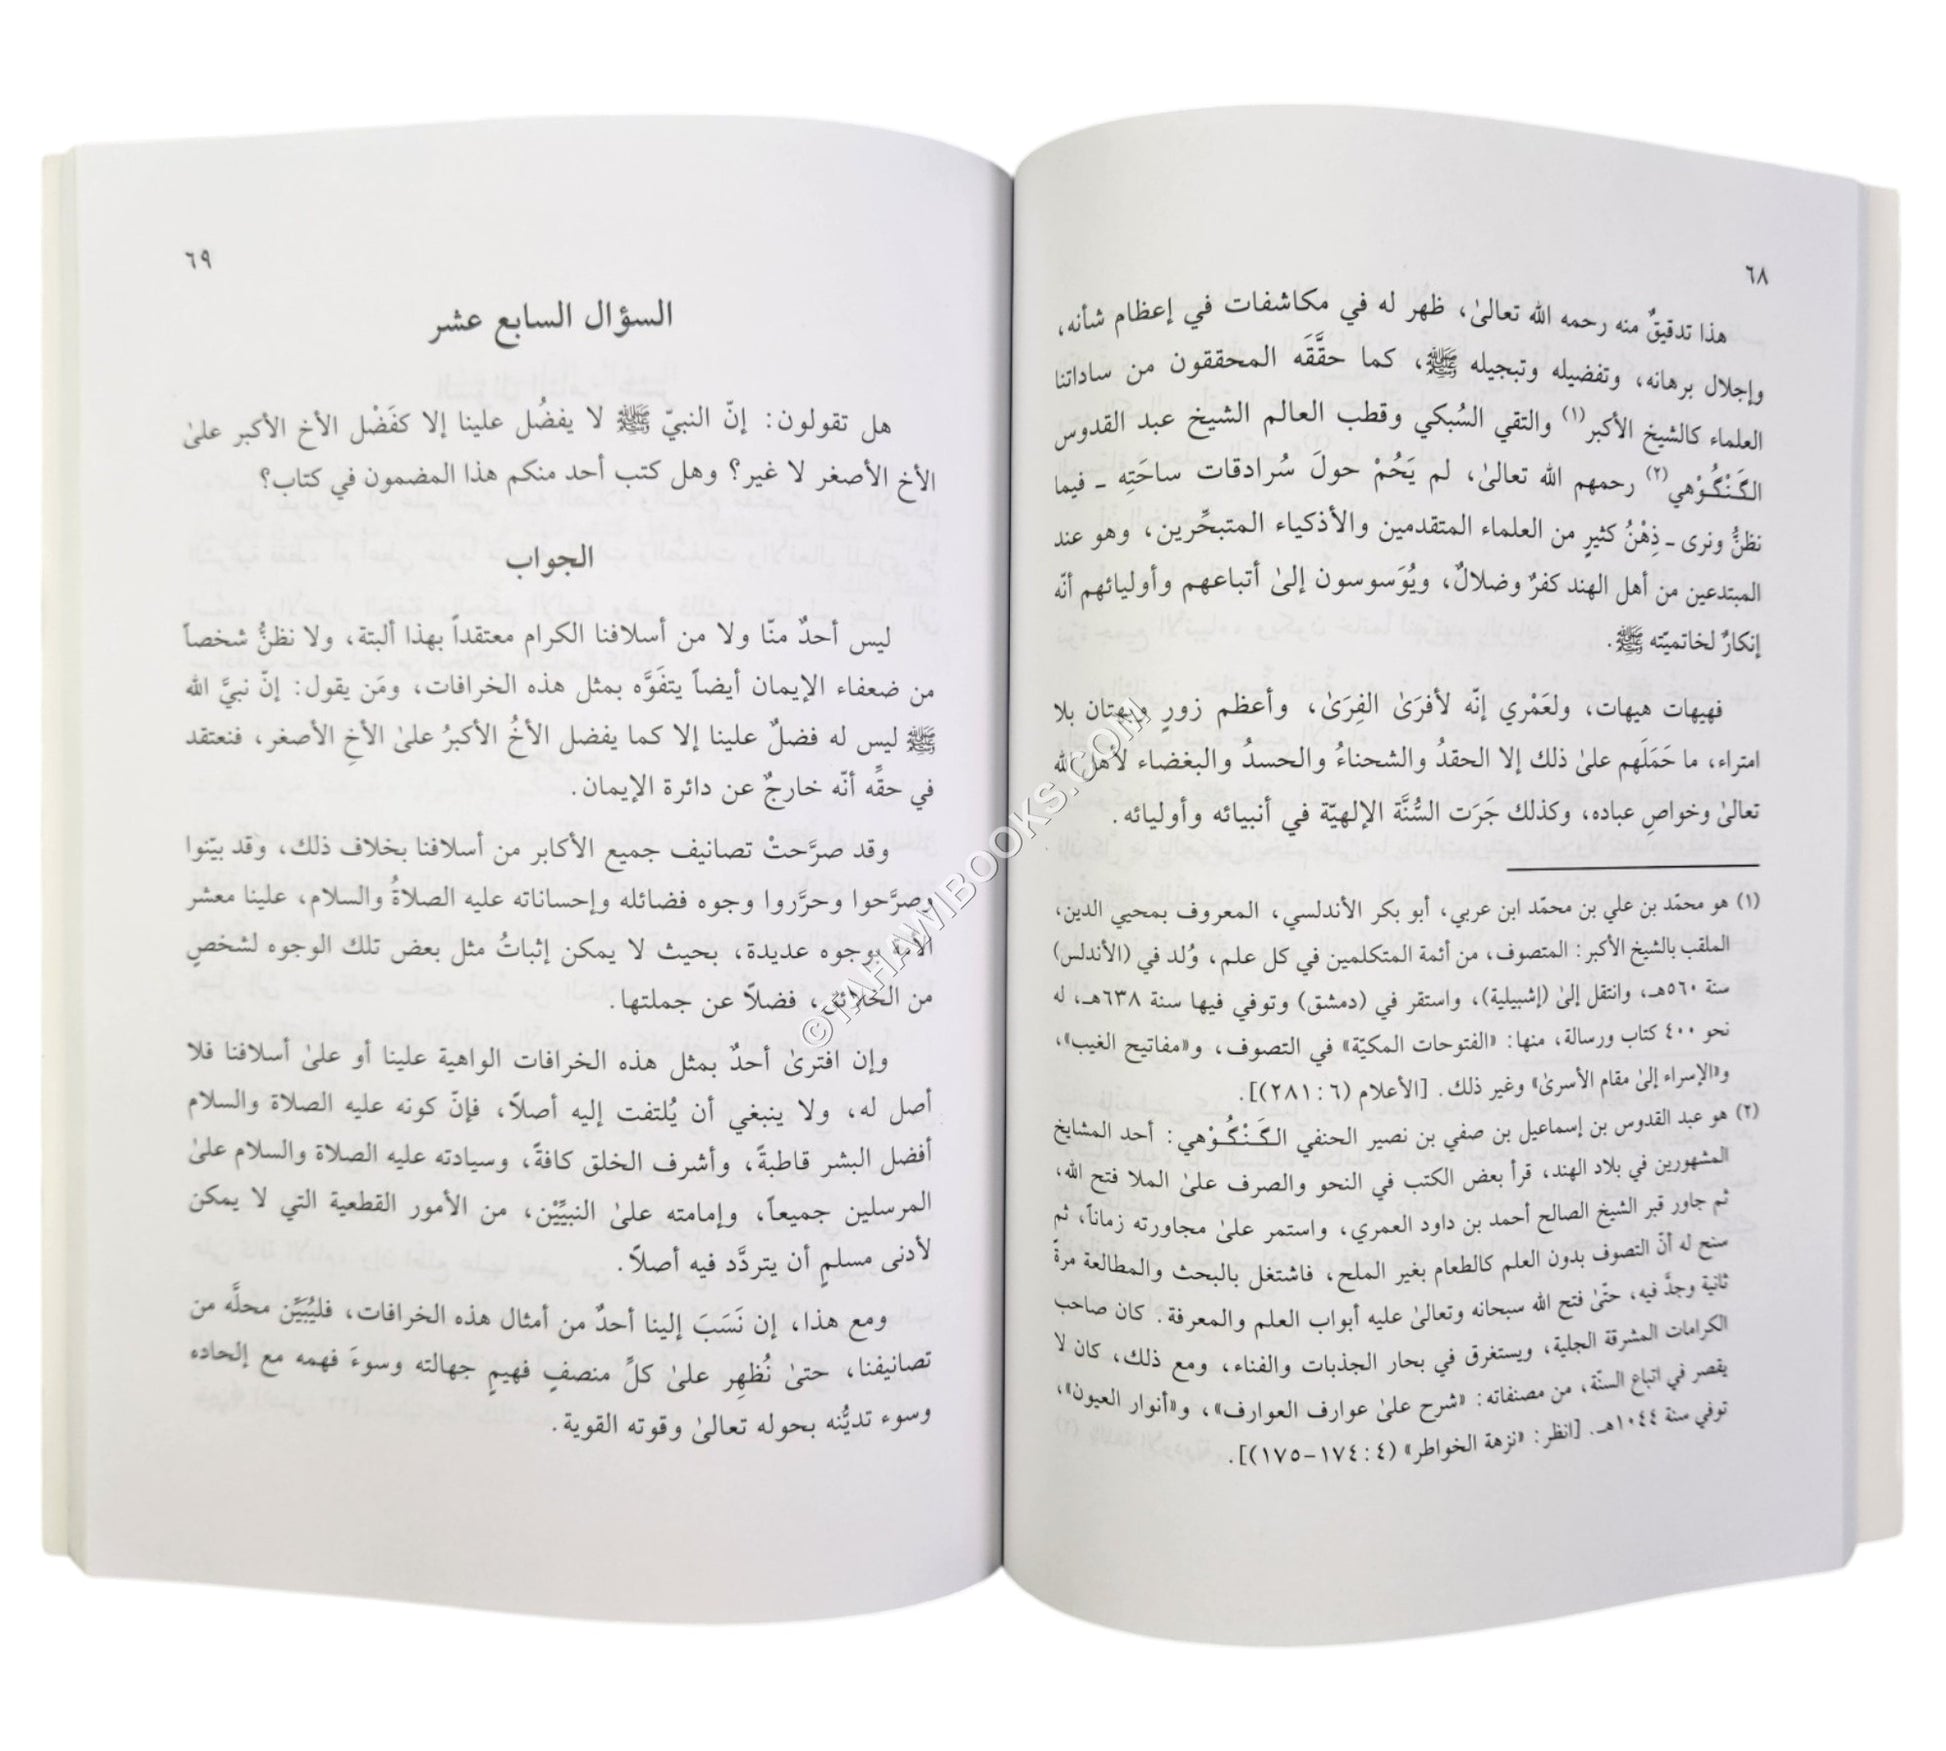 ٦٨
هذا تدقيقٌ منه رحمه الله تعالىٰ، ظهر له في مكاشفات في إعظام شأنه،
وإجلال برهانه، وتفضيله وتبجيله ﷺ، كما حقَّقَه المحققون من ساداتنا
العلماء كالشيخ الأكبر(١) والتقي السُبكي وقطب العالم الشيخ عبد القدوس
الگَنْگُوْهي(٢) رحمهم الله تعالىٰ، لم يَحُمْ حولَ سُرادقات ساحَتِه ـ فيما
نظنُّ ونرى ـ ذِهْنُ كثيرٍ من العلماء المتقدمين والأذكياء المتبحِّرين، وهو عند
المبتدعين من أهل الهند كفرٌ وضلالٌ، ويُوَسوسون إلىٰ أتباعهم وأوليائهم أنّه
إنكارٌ لخاتميّته ﷺ.
فهيهات هيهات، ولعَمْري إنّه لأفرَىٰ الفِرَىٰ، وأعظم زورٍ وبهتان بلا
امتراء، ما حَمَلَهم علىٰ ذلك إلا الحقدُ والشحناءُ والحسدُ والبغضاء لأهل الله
تعالىٰ وخواصِ عباده، وكذلك جَرَت السُّنَّة الإلهيّة في أنبيائه وأوليائه.
(١) هو محمّد بن علي بن محمّد ابن عربي، أبو بكر الأندلسي، المعروف بمحيي الدين،
الملقب بالشيخ الأكبر: المتصوف، من أئمة المتكلمين في كل علم، وُلد في (الأندلس)
سنة ٥٦٠هـ، وانتقل إلىٰ (إشبيلية)، واستقر في (دمشق) وتوفي فيها سنة ٦٣٨هـ، له
نحو ٤٠٠ كتاب ورسالة، منها: «الفتوحات المكيّة» في التصوف، و«مفاتيح الغيب»،
و«الإسراء إلىٰ مقام الأسرىٰ» وغير ذلك. [الأعلام (٦: ٢٨١)].
(٢) هو عبد القدوس بن إسماعيل بن صفي بن نصير الحنفي الگَنْگُوْهي: أحد المشايخ
المشهورين في بلاد الهند، قرأ بعض الكتب في النحو والصرف علىٰ الملا فتح الله،
ثم جاور قبر الشيخ الصالح أحمد بن داود العمري، واستمر علىٰ مجاورته زماناً، ثم
سنح له أنّ التصوف بدون العلم كالطعام بغير الملح، فاشتغل بالبحث والمطالعة مرةً
ثانية وجدَّ فيه، حتّىٰ فتح الله سبحانه وتعالىٰ عليه أبواب العلم والمعرفة. كان صاحب
الكرامات المشرقة الجلية، ويستغرق في بحار الجذبات والفناء، ومع ذلك، كان لا
يقصر في اتباع السنّة، من مصنفاته: «شرح علىٰ عوارف العوارف»، و«أنوار العيون»،
توفي سنة ١٠٤٤هـ. [انظر: «نزهة الخواطر» (٤: ١٧٤-١٧٥)].
٦٩
السؤال السابع عشر
هل تقولون: إنّ النبيّ ﷺ لا يفضُل علينا إلا كفَضْل الأخ الأكبر علىٰ
الأخ الأصغر لا غير؟ وهل كتب أحد منكم هذا المضمون في كتاب؟
الجواب
ليس أحدٌ منّا ولا من أسلافنا الكرام معتقداً بهذا ألبتة، ولا نظنُّ شخصاً
من ضعفاء الإيمان أيضاً يتفَوَّه بمثل هذه الخرافات، ومَن يقول: إنّ نبيَّ الله
ﷺ ليس له فضلٌ علينا إلا كما يفضل الأخُ الأكبرُ علىٰ الأخِ الأصغر، فنعتقد
في حقِّه أنّه خارجٌ عن دائرة الإيمان.
وقد صرَّحتْ تصانيف جميع الأكابر من أسلافنا بخلاف ذلك، وقد بيّنوا
وصرَّحوا وحرَّروا وجوه فضائله وإحساناته عليه الصلاةُ والسلام، علينا معشر
الأمة بوجوه عديدة، بحيث لا يمكن إثباتُ مثل بعض تلك الوجوه لشخصٍ
من الخلائق، فضلاً عن جملتها.
وإن افترىٰ أحدٌ بمثل هذه الخرافات الواهية علينا أو علىٰ أسلافنا فلا
أصل له، ولا ينبغي أن يُلتفت إليه أصلاً، فإنّ كونه عليه الصلاة والسلام
أفضل البشر قاطبةً، وأشرف الخلق كافةً، وسيادته عليه الصلاة والسلام علىٰ
المرسلين جميعاً، وإمامته علىٰ النبيِّيْن، من الأمور القطعية التي لا يمكن
لأدنى مسلمٍ أن يتردَّد فيه أصلاً.
ومع هذا، إن نَسَبَ إلينا أحدٌ من أمثال هذه الخرافات، فليُبيِّن محلَّه من
تصانيفنا، حتىٰ نُظهِر علىٰ كلِّ منصفٍ فهيمٍ جهالته وسوءَ فهمه مع إلحاده
وسوء تديُّنه بحوله تعالىٰ وقوته القوية.
©TAHAWIBOOKS.COM